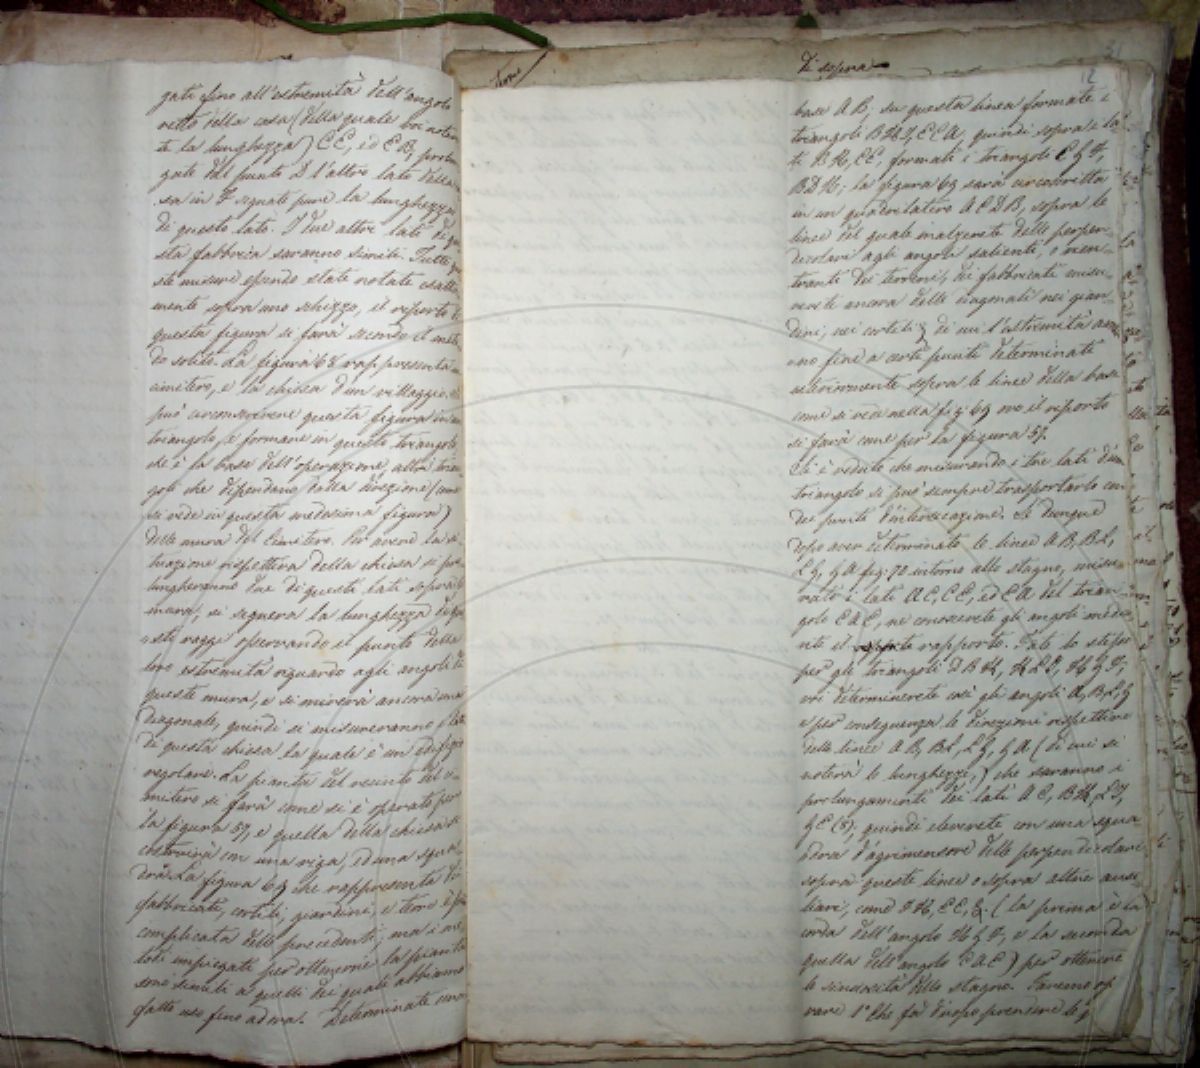 gati fino all'estremità dell'angolo
retto della casa (della quale voi note
te la lunghezza) CE, ed EB, prolun
gate dal punto D l'altro lato della
sa in F segnate pure la lunghezza
di questo lato. I due altri lati di que
sta fabbrica saranno simili. Tutte que
ste misure essendo state notate esatta
mente sopra uno schizzo, il rapporto di
questa figura si farà secondo il meto
do solito. La figura 68 rappresenta un
cimitero, e la chiesa d'un villaggio, si
può circonscrivere questa figura in un
triangolo, e formare in questo triangolo
che è la base dell'operazione, altri trian
goli che dipendano dalla direzione (come
si vede in questa medesima figura)
delle mura del Cimitero. Per avere la si
tuazione rispettiva della chiesa si pro
lungheranno due di questi lati sopra le
mura, si segnerà la lunghezza di que
sti raggi osservando il punto della
loro estremità riguardo agli angoli di
queste mura, e si misurerà ancora una
diagonale, quindi si misureranno i lati
di questa chiesa la quale è un edifizio
regolare. La pianta del recinto del ci
mitero si farà come si è operato per
la figura 57, e quella della chiesa si
costruirà con una riga, ed una squa
dra. La figura 69 che rappresenta di
fabbricati, cortili, giardini, e terre è più
complicata delle precedenti; ma i me
todi impiegati per ottenerne la pianta
sono simili a quelli dei quali abbiamo
fatto uso fino ad ora. Determinate una
Di sopra
12
base AB; su questa linea formate i
triangoli BHI, ECA quindi sopra i la
ti BH, CE, formati i triangoli
BDH; la figura 69 sarà circoscritta
in un quadrilatero ACDB, sopra le
linee del quale innalzerete delle perpen
dicolari agli angoli salienti, o rien
tranti dei terreni, dei fabbricati misu
rerete ancora delle diagonali nei giar
dini, nei cortili; di cui l'estremità an
no fine a certi punti determinati
anteriormente sopra le linee della base
come si vede nella fig: 69 ove il rapporto
si farà come per la figura 57.
Si è veduto che misurando i tre lati d'un
triangolo si può sempre trasportarlo con
dei punti d'intersecazione. Se dunque
dopo aver determinate le linee AB, BL,
LG, GA fig: 70 intorno allo stagno, misu
rati i lati AC, CE, ed EA del trian
golo EAC, ne conoscerete gli angoli median
te il rapporto. Fate lo stesso
per gli triangoli
voi determinerete così gli angoli A, B, L, G
e per conseguenza le direzioni rispettive
delle linee AB, BL, LG, GA (di cui si
noterà le lunghezze,) che saranno i
prolungamenti dei lati AC, BH, LI,
GE (8), quindi eleverete con una squa
dra d'agrimensore delle perpendicolari
sopra queste linee o sopra altre ausi
liari, come FH, EC, &. (la prima è la
corda dell'angolo HGF, e la seconda
quella dell'angolo EAC) per ottenere
le sinuosità dello stagno. Faremo os
vare 1° Che fà d'uopo prendere le p